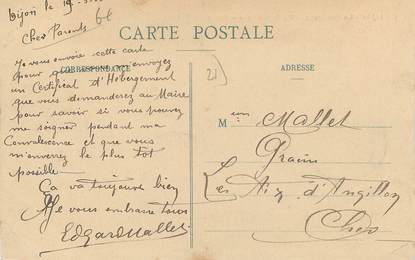 Dijon le 19
Cher Parents
CARTE POSTALE
Je vous envoie cette carte
CORRESPONDANCE
pour que envoyez
un Certificat d'Hébergement
que vous demanderez au Maire
pour savoir si vous pouvez
me soigner pendant ma
Convalescence et que vous
m'enverrez le plus tot
possible
Ça va toujours bien
Je vous embrasse tous
Edgard Mallet
ADRESSE
21
M Mallet
Les Aix d'Angillon
Cher